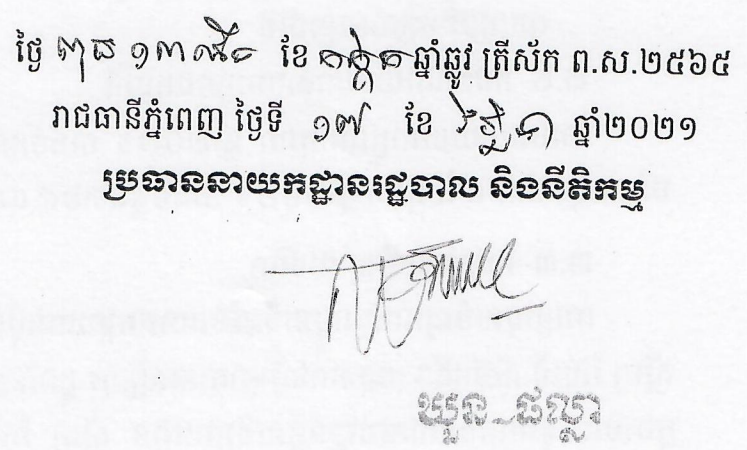 ថ្ងៃ ពុធ ១៣ កើត ខែ កត្តិក ឆ្នាំឆ្លូវ ត្រីស័ក ព.ស.២៥៦៥
រាជធានីភ្នំពេញ ថ្ងៃទី ១៧ ខែ វិច្ឆិកា ឆ្នាំ២០២១
ប្រធាននាយកដ្ឋានរដ្ឋបាល និងនីតិកម្ម
ឃួន ផល្លា